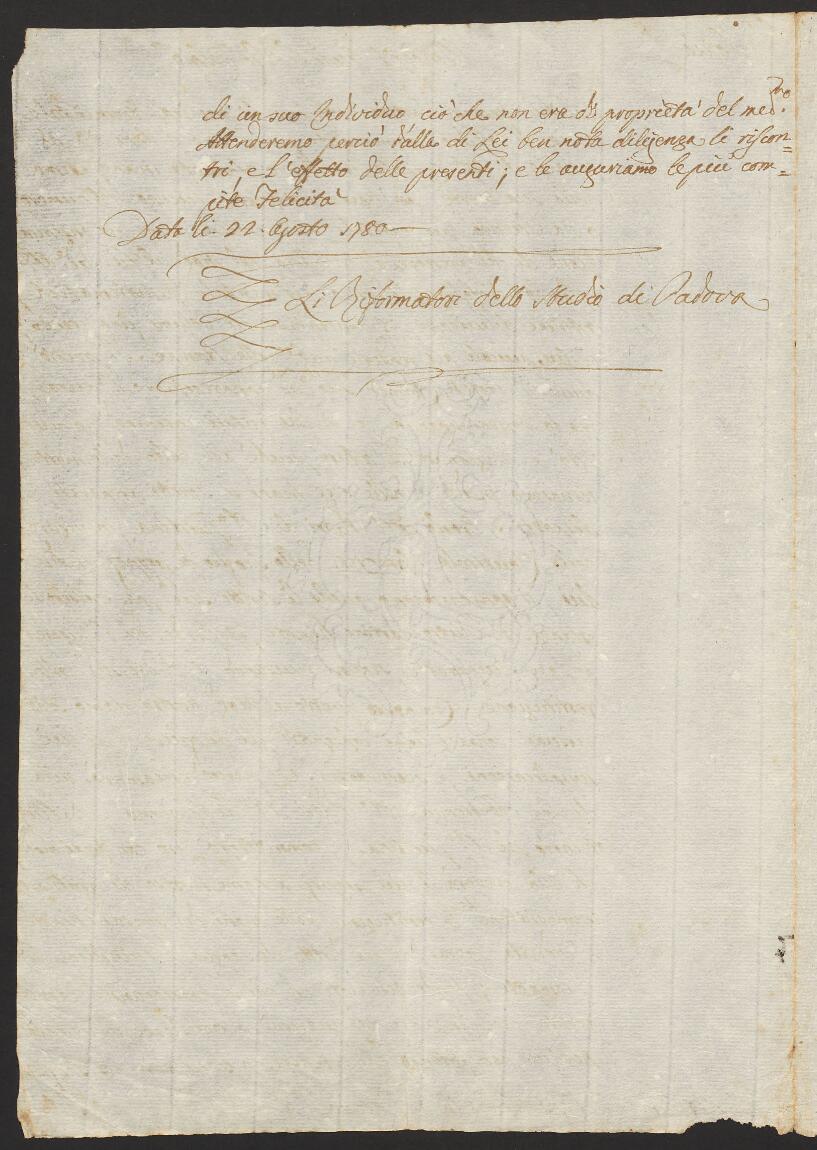 di un suo Individuo ciò che non era di proprietà del med.mo
Attenderemo perciò dalla di Lei ben nota diligenza li riscon=
tri, e l'effetto delle presenti; e le auguriamo le più com=
pite Felicità
Data li 22. Agosto 1780
Li Riformatori dello Studio di Padova